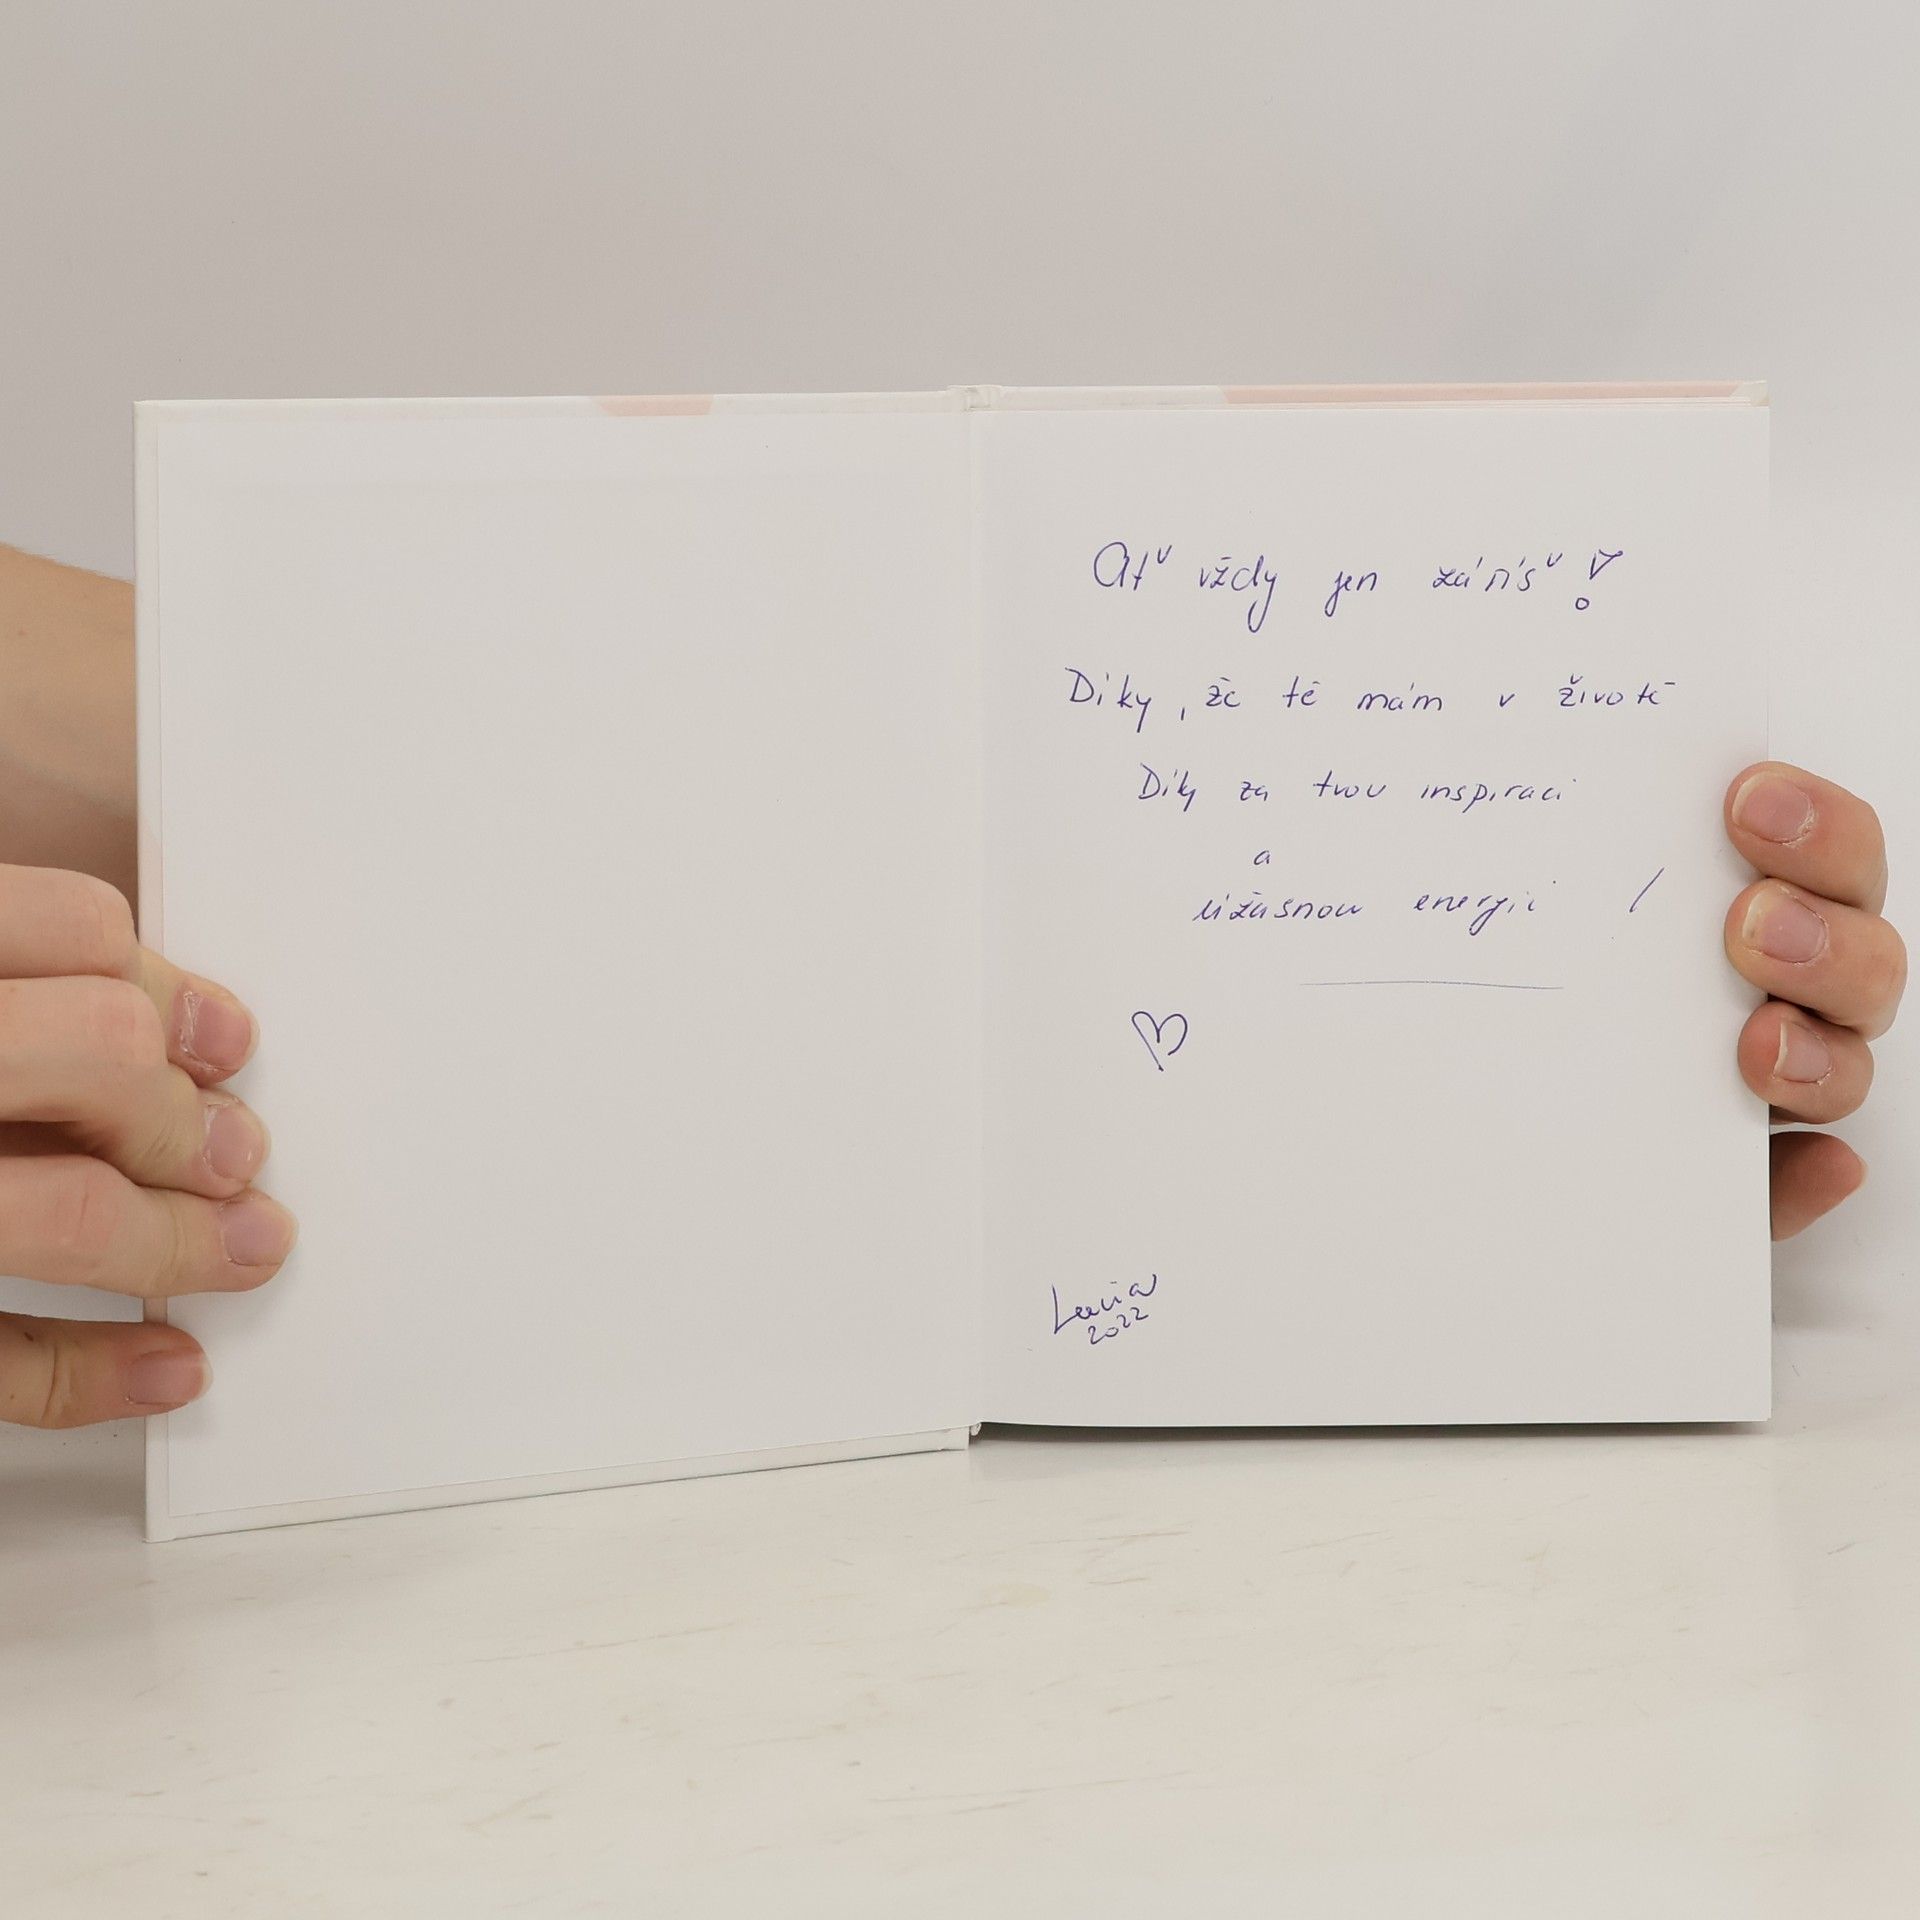 Ať vždy jen záříš!
Díky, že tě mám v životě
Díky za tvou inspiraci
a
úžasnou energii !
Lucia
2022